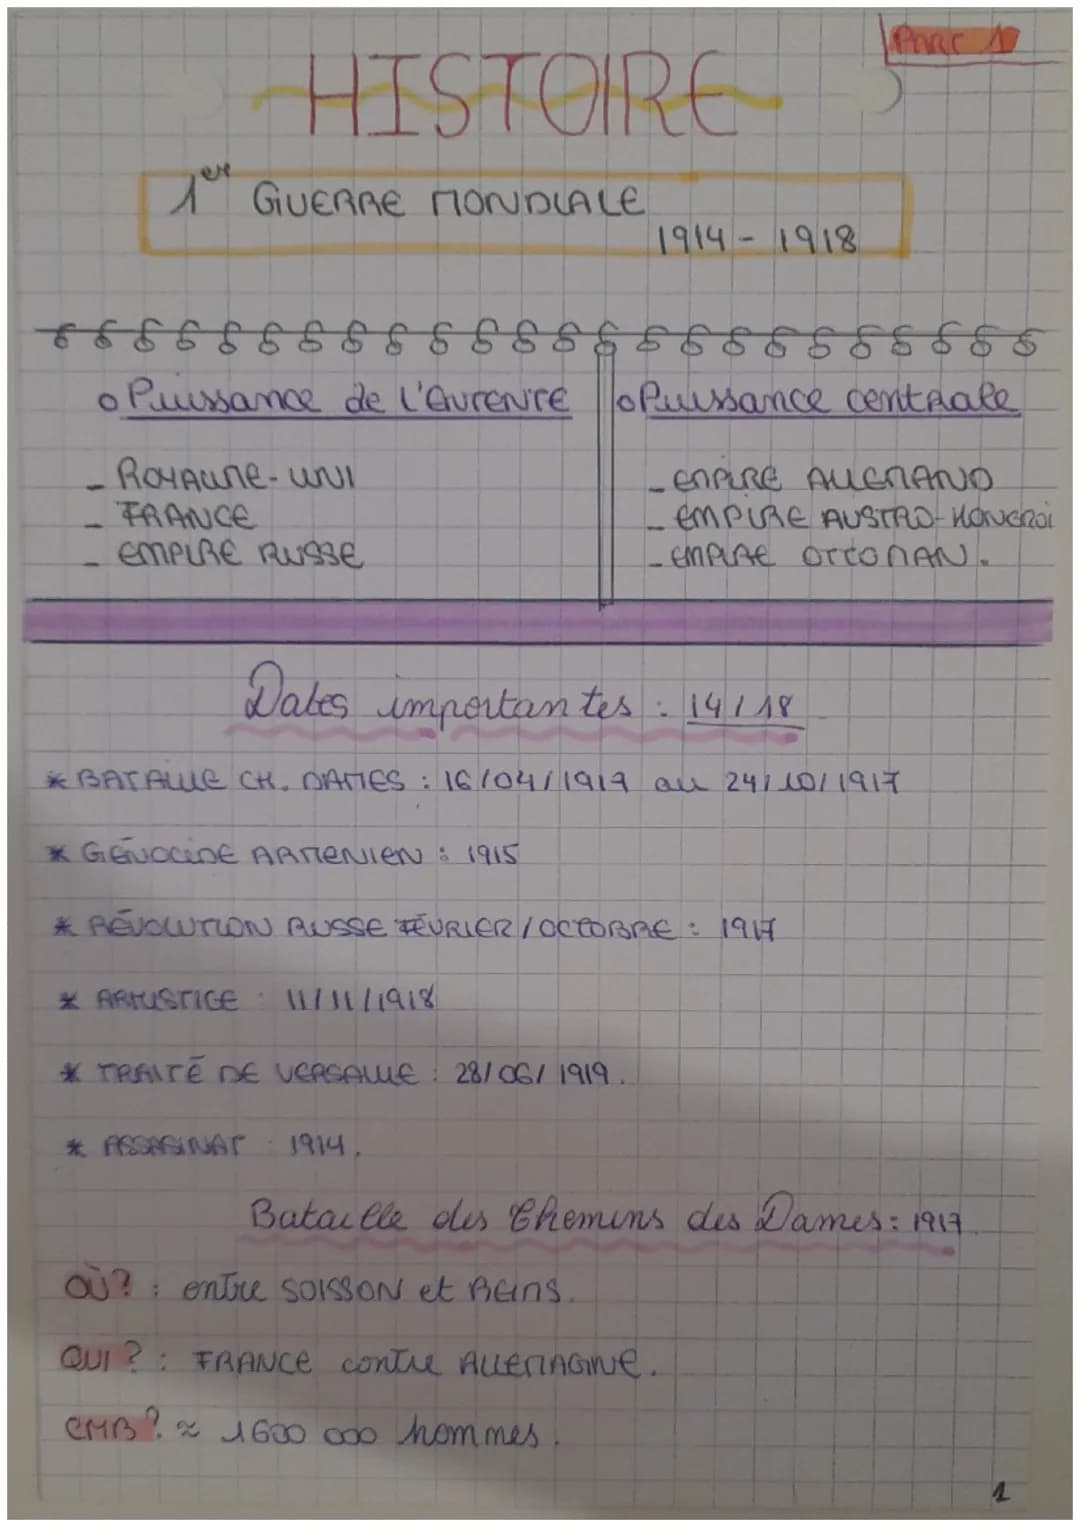 PART 1
HISTOIRE
1er GUERRE MONDIALE
1914 - 1918
Puissance de l'ENTENTE
- ROYAUME-UNI
- FRANCE
- EMPIRE RUSSE
Puissance centrale
- EMPIRE ALLEMAND
- EMPIRE AUSTRO-HONGROI
- EMPIRE OTTOMAN.
Dates importantes : 14/18
* BATAILLE CH. DAMES : 16/04/1917 au 24/10/1917
* GÉNOCIDE ARMENIEN : 1915
* RÉVOLUTION RUSSE FÉVRIER/OCTOBRE : 1917
* ARMISTICE : 11/11/1918
* TRAITÉ DE VERSAILLE : 28/06/1919.
* ASSASINAT : 1914.
Bataille des Chemins des Dames : 1917
OÙ? : entre SOISSON et REIMS.
QUI ? : FRANCE contre ALLEMAGNE.
CMB ? ≈ 1600 000 hommes.
1